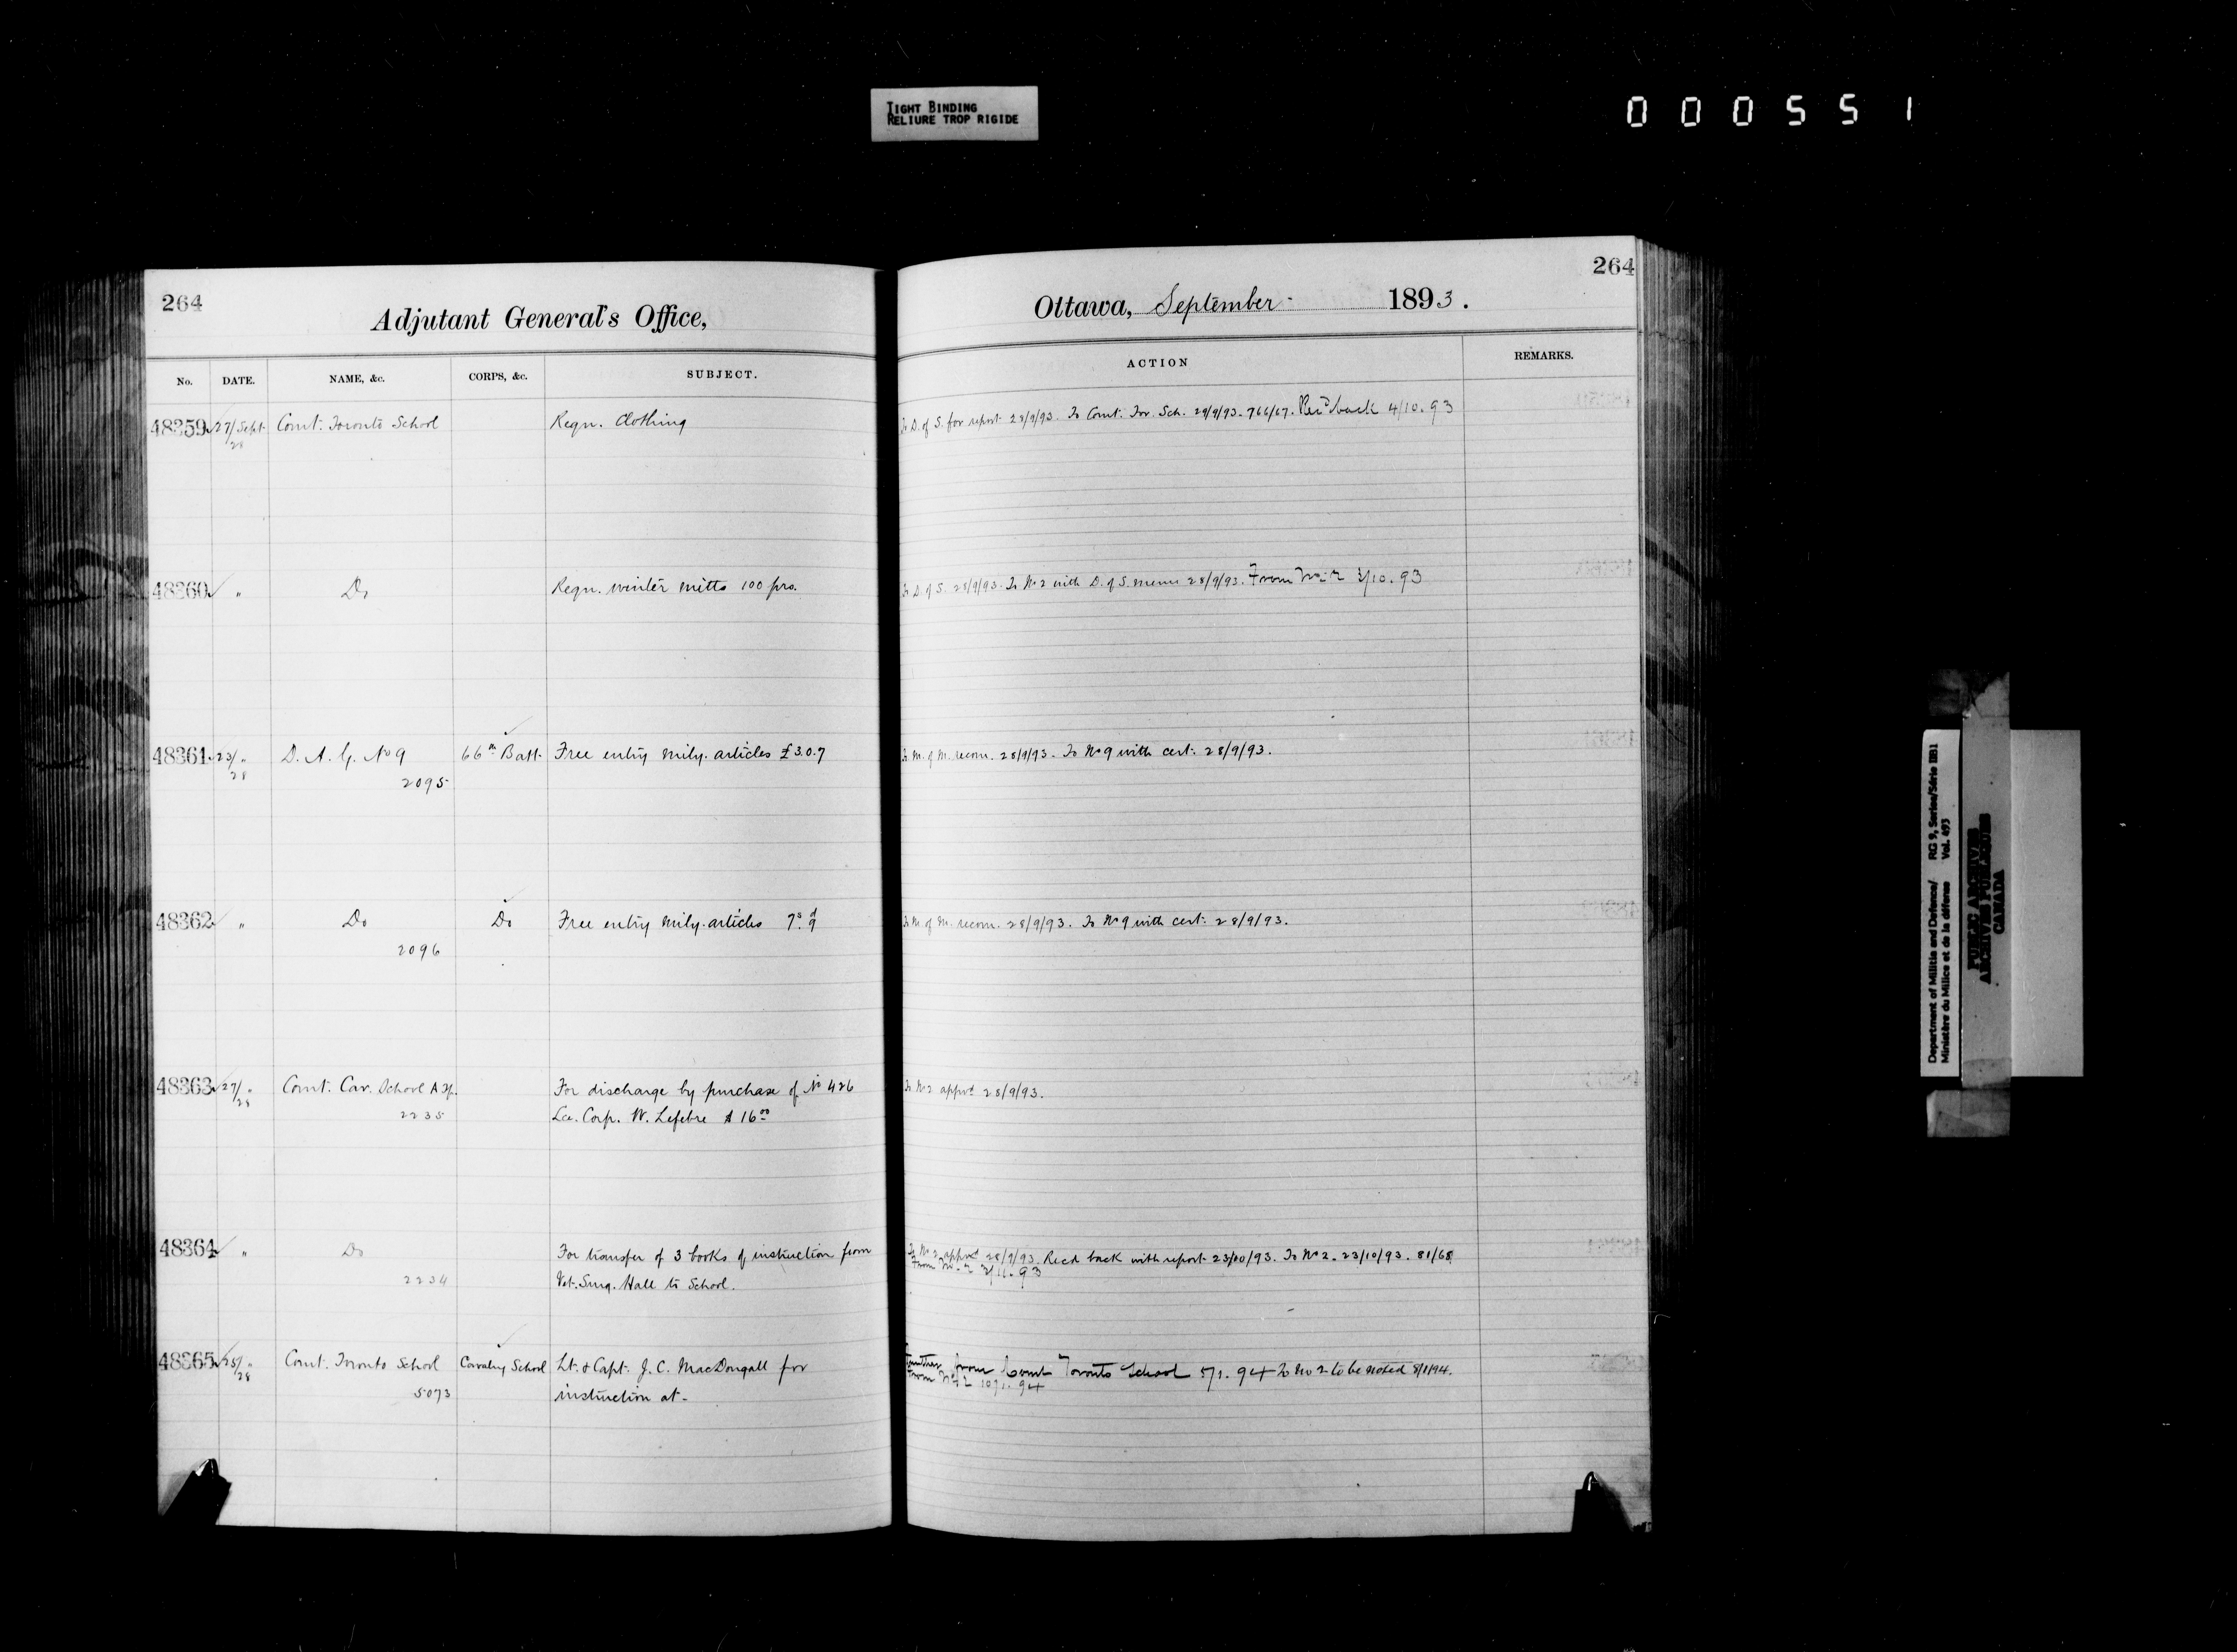 TIGHT BINDING
RELIURE TROP RIGIDE
000551
264
Adjutant General's Office,
Ottawa, September 1893.
264
No. DATE. NAME, &c. CORPS, &c. SUBJECT. ACTION REMARKS.
48359 27/Sept. Comt. Toronto School Reqn. Clothing To D. of S. for report 28/9/93. To Comt. Tor. Sch. 29/9/93. 766/67. Recd back 4/10.93
28
48360 " Do Reqn. winter mitts 100 prs. To D. of S. 28/9/93. To No 2 with D. of S. memo 28/9/93. From No 2 /10.93
48361 23/" D. A. G. No 9 66th Batt. Free entry mily. articles £3.0.7 To M. of M. recom. 28/9/93. To No 9 with cert. 28/9/93.
28 2095
48362 " Do Do Free entry mily. articles 7s. 9d To M. of M. recom. 28/9/93. To No 9 with cert. 28/9/93.
2096
48363 27/" Comt. Cav. School For discharge by purchase of No 426 To No 2 apprvd 28/9/93.
28 2235 Lce. Corp. W. Lefebre $16.00
48364 " Do For transfer of 3 books of instruction from To No 2 apprvd 28/9/93. Recd back with report 23/10/93. To No 2. 23/10/93. 81/68
2234 Vet. Surg. Hall to School. From No. 2 /11.93
48365 25/" Comt. Toronto School Cavalry School Lt. & Capt. J. C. MacDougall for Further from Comt Toronto School 5/1.94 To No 2 to be noted 8/1/94.
28 5073 instruction at - From No 2 10/1.94
Department of Militia and Defence/ RG 9, Series/Série IIB1
Ministère du Milice et de la défense Vol. 493
PUBLIC ARCHIVES
ARCHIVES PUBLIQUES
CANADA